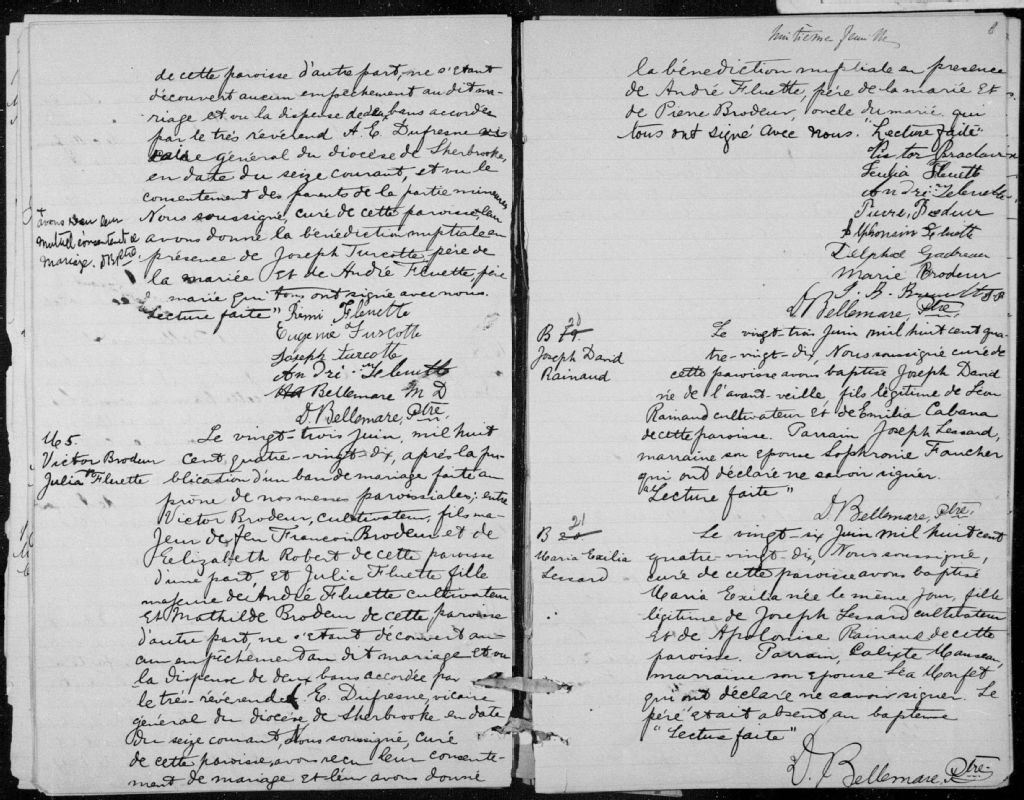 de cette paroisse d'autre part, ne s'etant
découvert aucun empêchement au dit ma-
riage et vu la dispense de deux bans accordée
par le très révérend A. E. Dufresne
général du diocèse de Sherbrooke,
en date du seize courant, et vu le
consentement des parents de la partie mineure
Nous soussigné, curé de cette paroisse
avons donné la bénédiction nuptiale en
présence de Joseph Turcotte, père de
la mariée et de André Fluette, père
marié qui tous ont signé avec nous.
Lecture faite" Rémi Fluette
Eugenie Turcotte
Joseph Turcotte
André Fluette
Bellemare M D
D. Bellemare, Ptre.
+ avons reçu leur
mutuel consentent de
mariage. DB Ptre.
M 5.
Victor Brodeur
&
Julia Fluette
Le vingt-trois Juin, mil huit
cent quatre-vingt-dix, après la pu-
blication d'un ban de mariage faite au
prône de nos messes paroissiales; entre
Victor Brodeur, cultivateur, fils ma-
jeur de feu François Brodeur et de
Eelizabeth Robert de cette paroisse
d'une part, et Julie Fluette fille
majeure de André Fluette cultivateur
et Mathilde Brodeur de cette paroisse
d'autre part, ne s'etant découvert au-
cun empêchement au dit mariage et vu
la dispense de deux bans accordée par
le très-révérende A. E. Dufresne, vicaire
général du diocèse de Sherbrooke en date
du seize courant, Nous soussigné, curé
de cette paroisse, avons reçu leur consente-
ment de mariage et leur avons donné
huitième feuille 8
la bénédiction nuptiale en presence
de André Fluette, père de la mariée et
de Pierre Brodeur, oncle du marié qui
tous ont signé avec nous. "Lecture faite"
Victor
Julia Fluette
André Fluette
Pierre Brodeur
Alphonsine Fluette
Delphce
Marie Brodeur
J. B.
D. Bellemare, Ptre.
B 20
Joseph David
Rainaud
Le vingt-trois Juin mil huit cent qua-
tre-vingt-dix, Nous soussigné curé de
cette paroisse avons baptisé Joseph David
né de l'avant-veille, fils légitime de Léon
Rainaud cultivateur et de Emilia Cabana
de cette paroisse. Parrain Joseph Lessard,
marraine son épouse Sophronie Faucher
qui ont déclaré ne savoir signer.
"Lecture faite"
D. Bellemare, Ptre.
21
B 20
Maria Exilia
Lessard
Le vingt-six Juin mil huit cent
quatre-vingt-dix, Nous soussigné,
curé de cette paroisse avons baptisé
Maria Exila née le même jour, fille
légitime de Joseph Lessard cultivateur
et de Apolonise Rainaud de cette
paroisse. Parrain, Calixte
marraine son épouse Léa Morfet
qui ont déclaré ne savoir signer. Le
père était absent au bapteme
"Lecture faite"
D. Bellemare, Ptre.